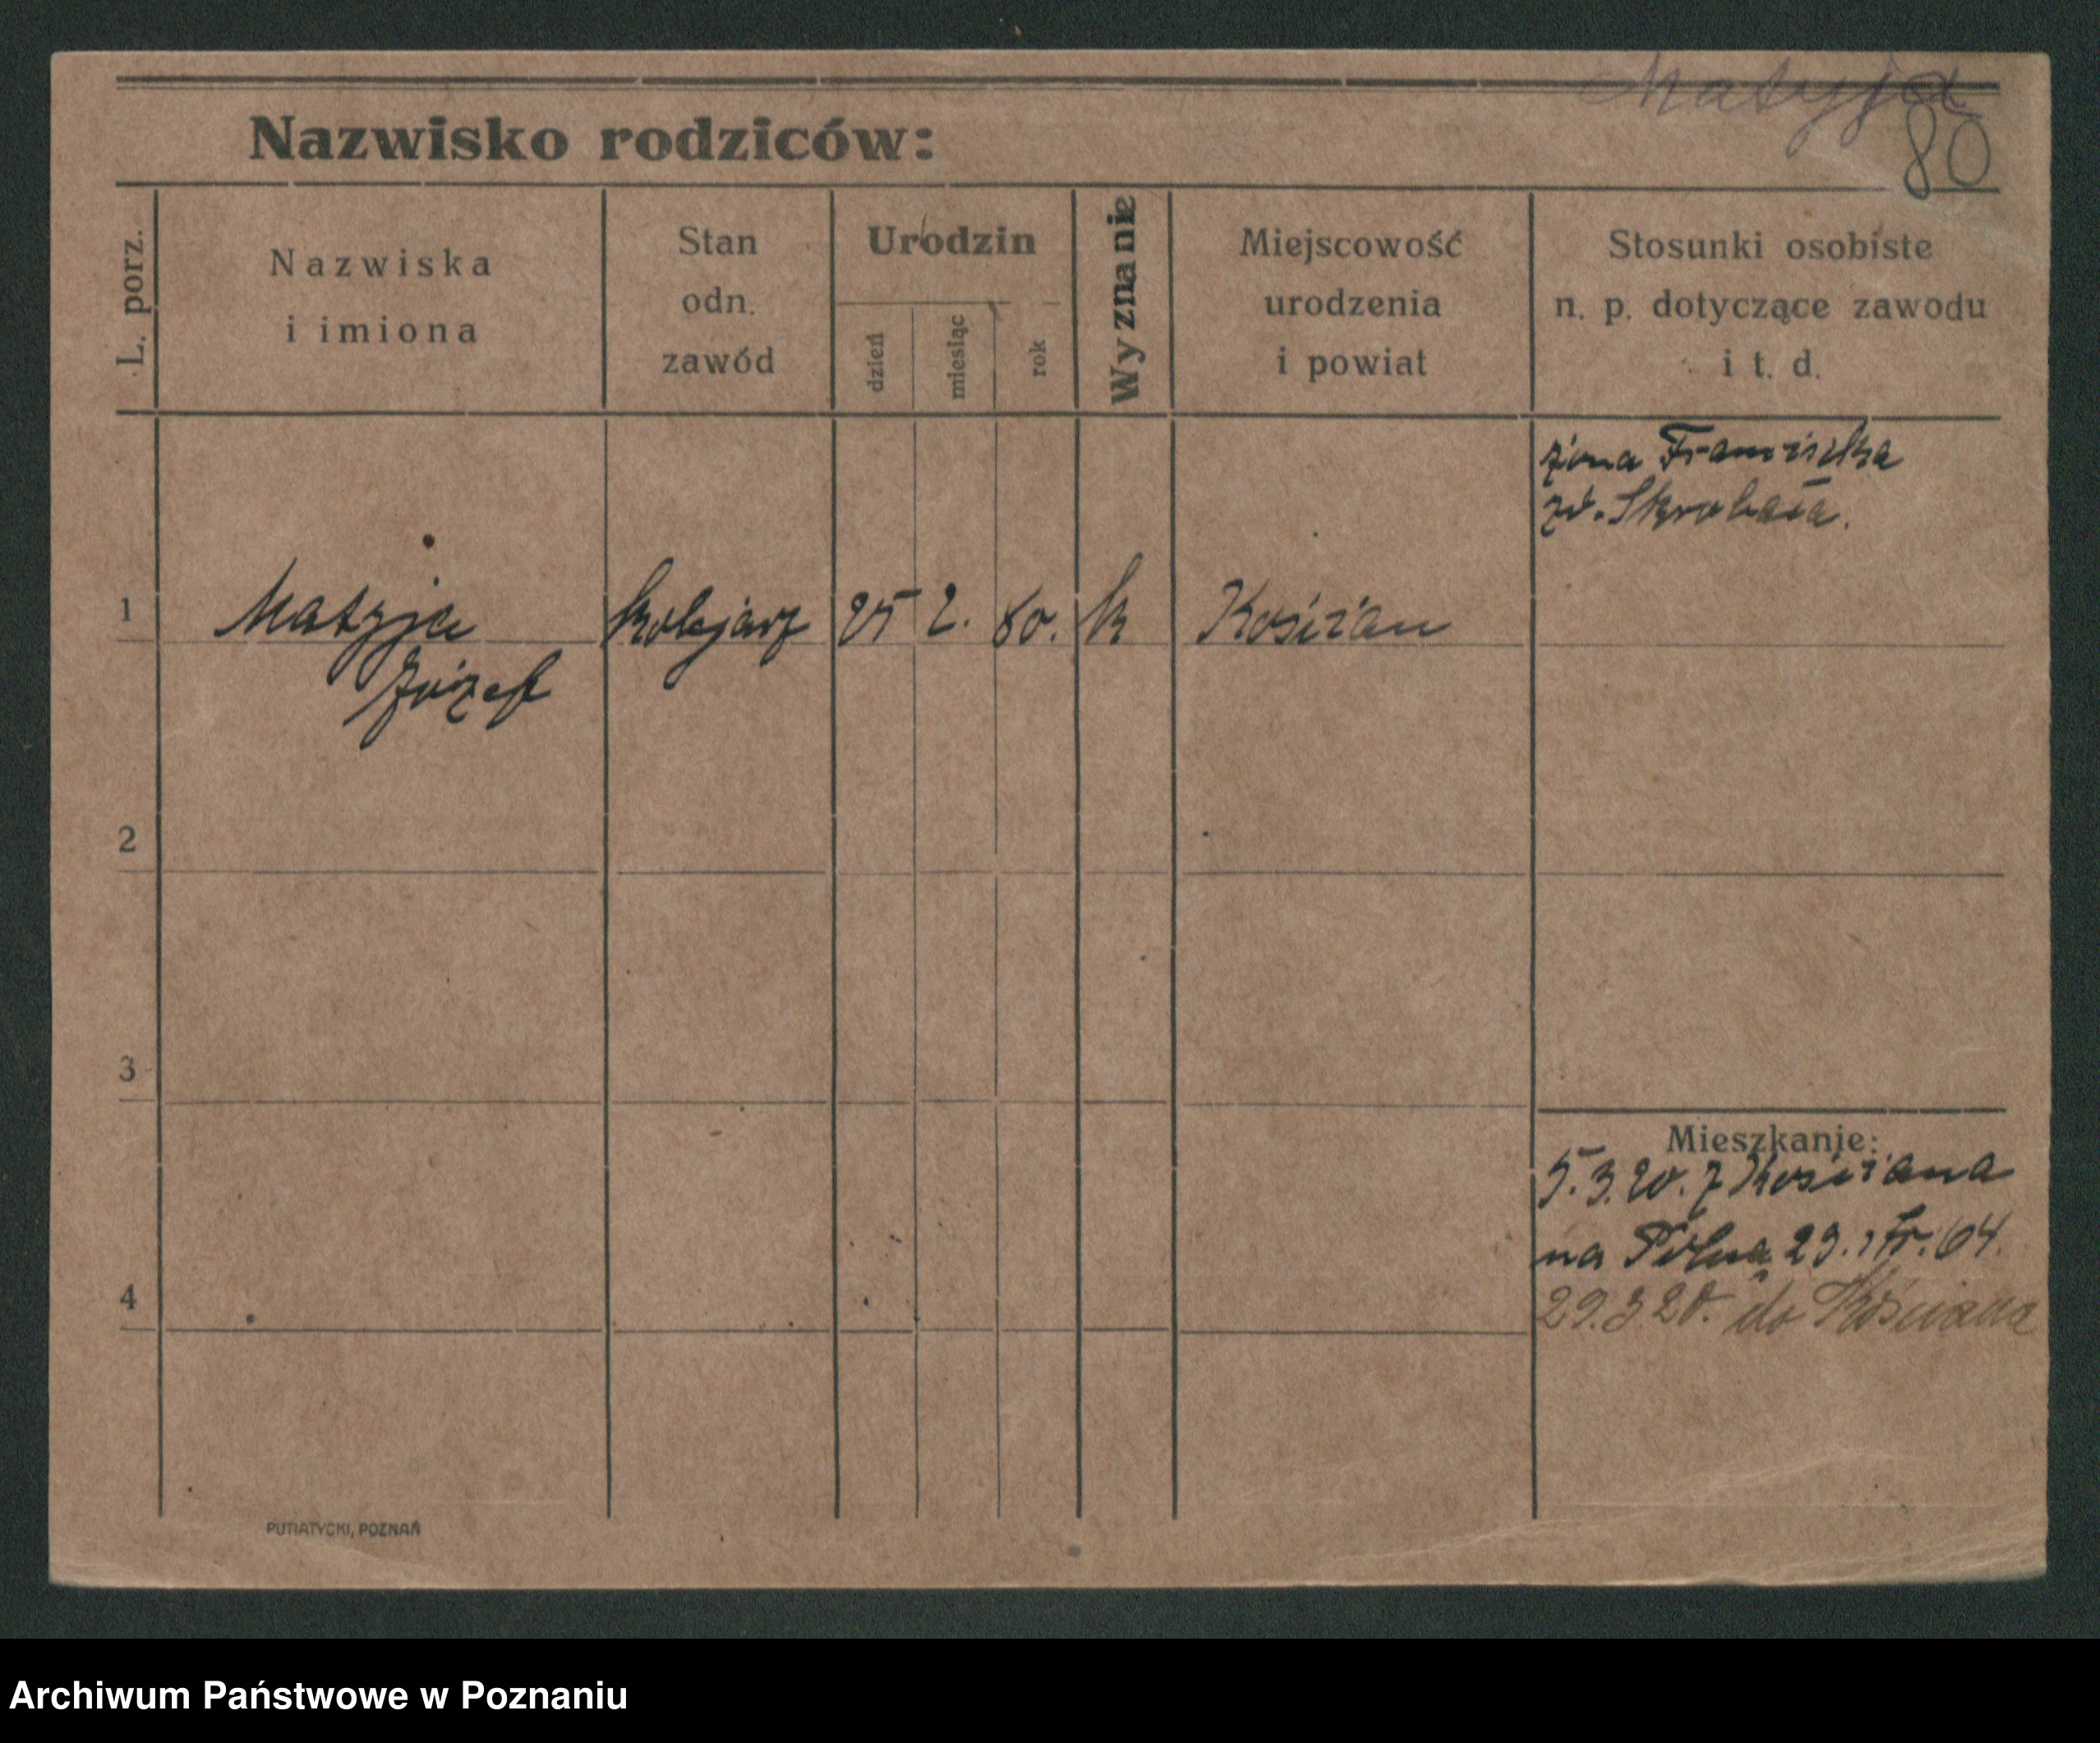 Matyja
80
Nazwisko rodziców:
L. porz.
Nazwiska
i imiona
Stan
odn.
zawód
Urodzin
dzień
miesiąc
rok
Wyznanie
Miejscowość
urodzenia
i powiat
Stosunki osobiste
n. p. dotyczące zawodu
i t. d.
żona Franciszka
1
Matyja
Józef
kolejarz
25
2.
80.
k
Kościan
2
3
4
Mieszkanie:
5.3.20. z Kościana
na Polną 29.
29.3.20. do Kościana
PUTIATYCKI, POZNAŃ
Archiwum Państwowe w Poznaniu